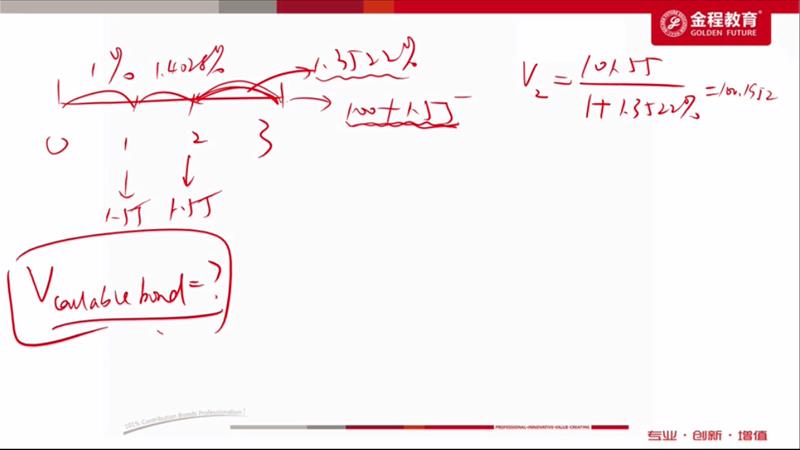 金程教育
GOLDEN FUTURE
1% 1.4028% 1.3522%
100+1.55
0 1 2 3
1.55 1.55
V callable bond = ?
V2 = 101.55 / 1+1.3522% = 100.1952
101% Contribution Breeds Professionalism!
PROFESSIONAL·INNOVATIVE·VALUE-CREATING
专业·创新·增值